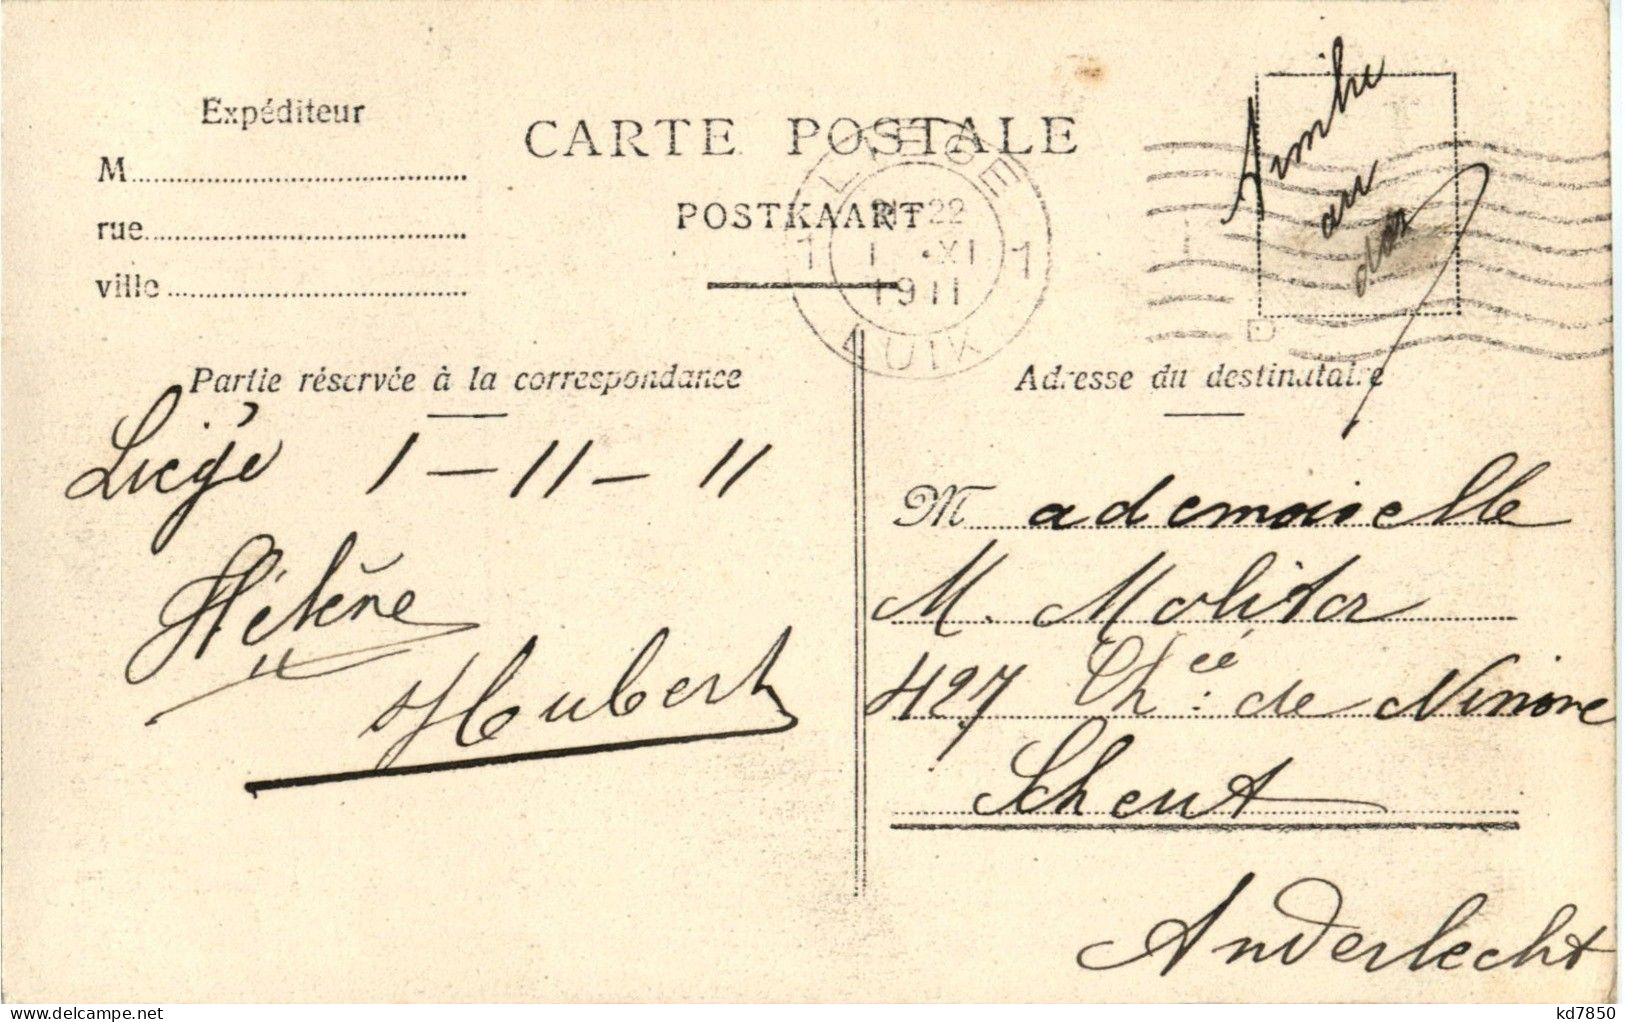 Expéditeur
M
rue
ville
CARTE POSTALE
POSTKAART
LIEGE
22
1 I .XI 1
1911
LUIK
Timbre
au
dos
Partie réservée à la correspondance
Liége 1 - 11 - 11
Hélène
Hubert
Adresse du destinataire
Mademoiselle
M. Molitor
427 Chée: de Ninove
Scheut
Anderlecht
kd7850